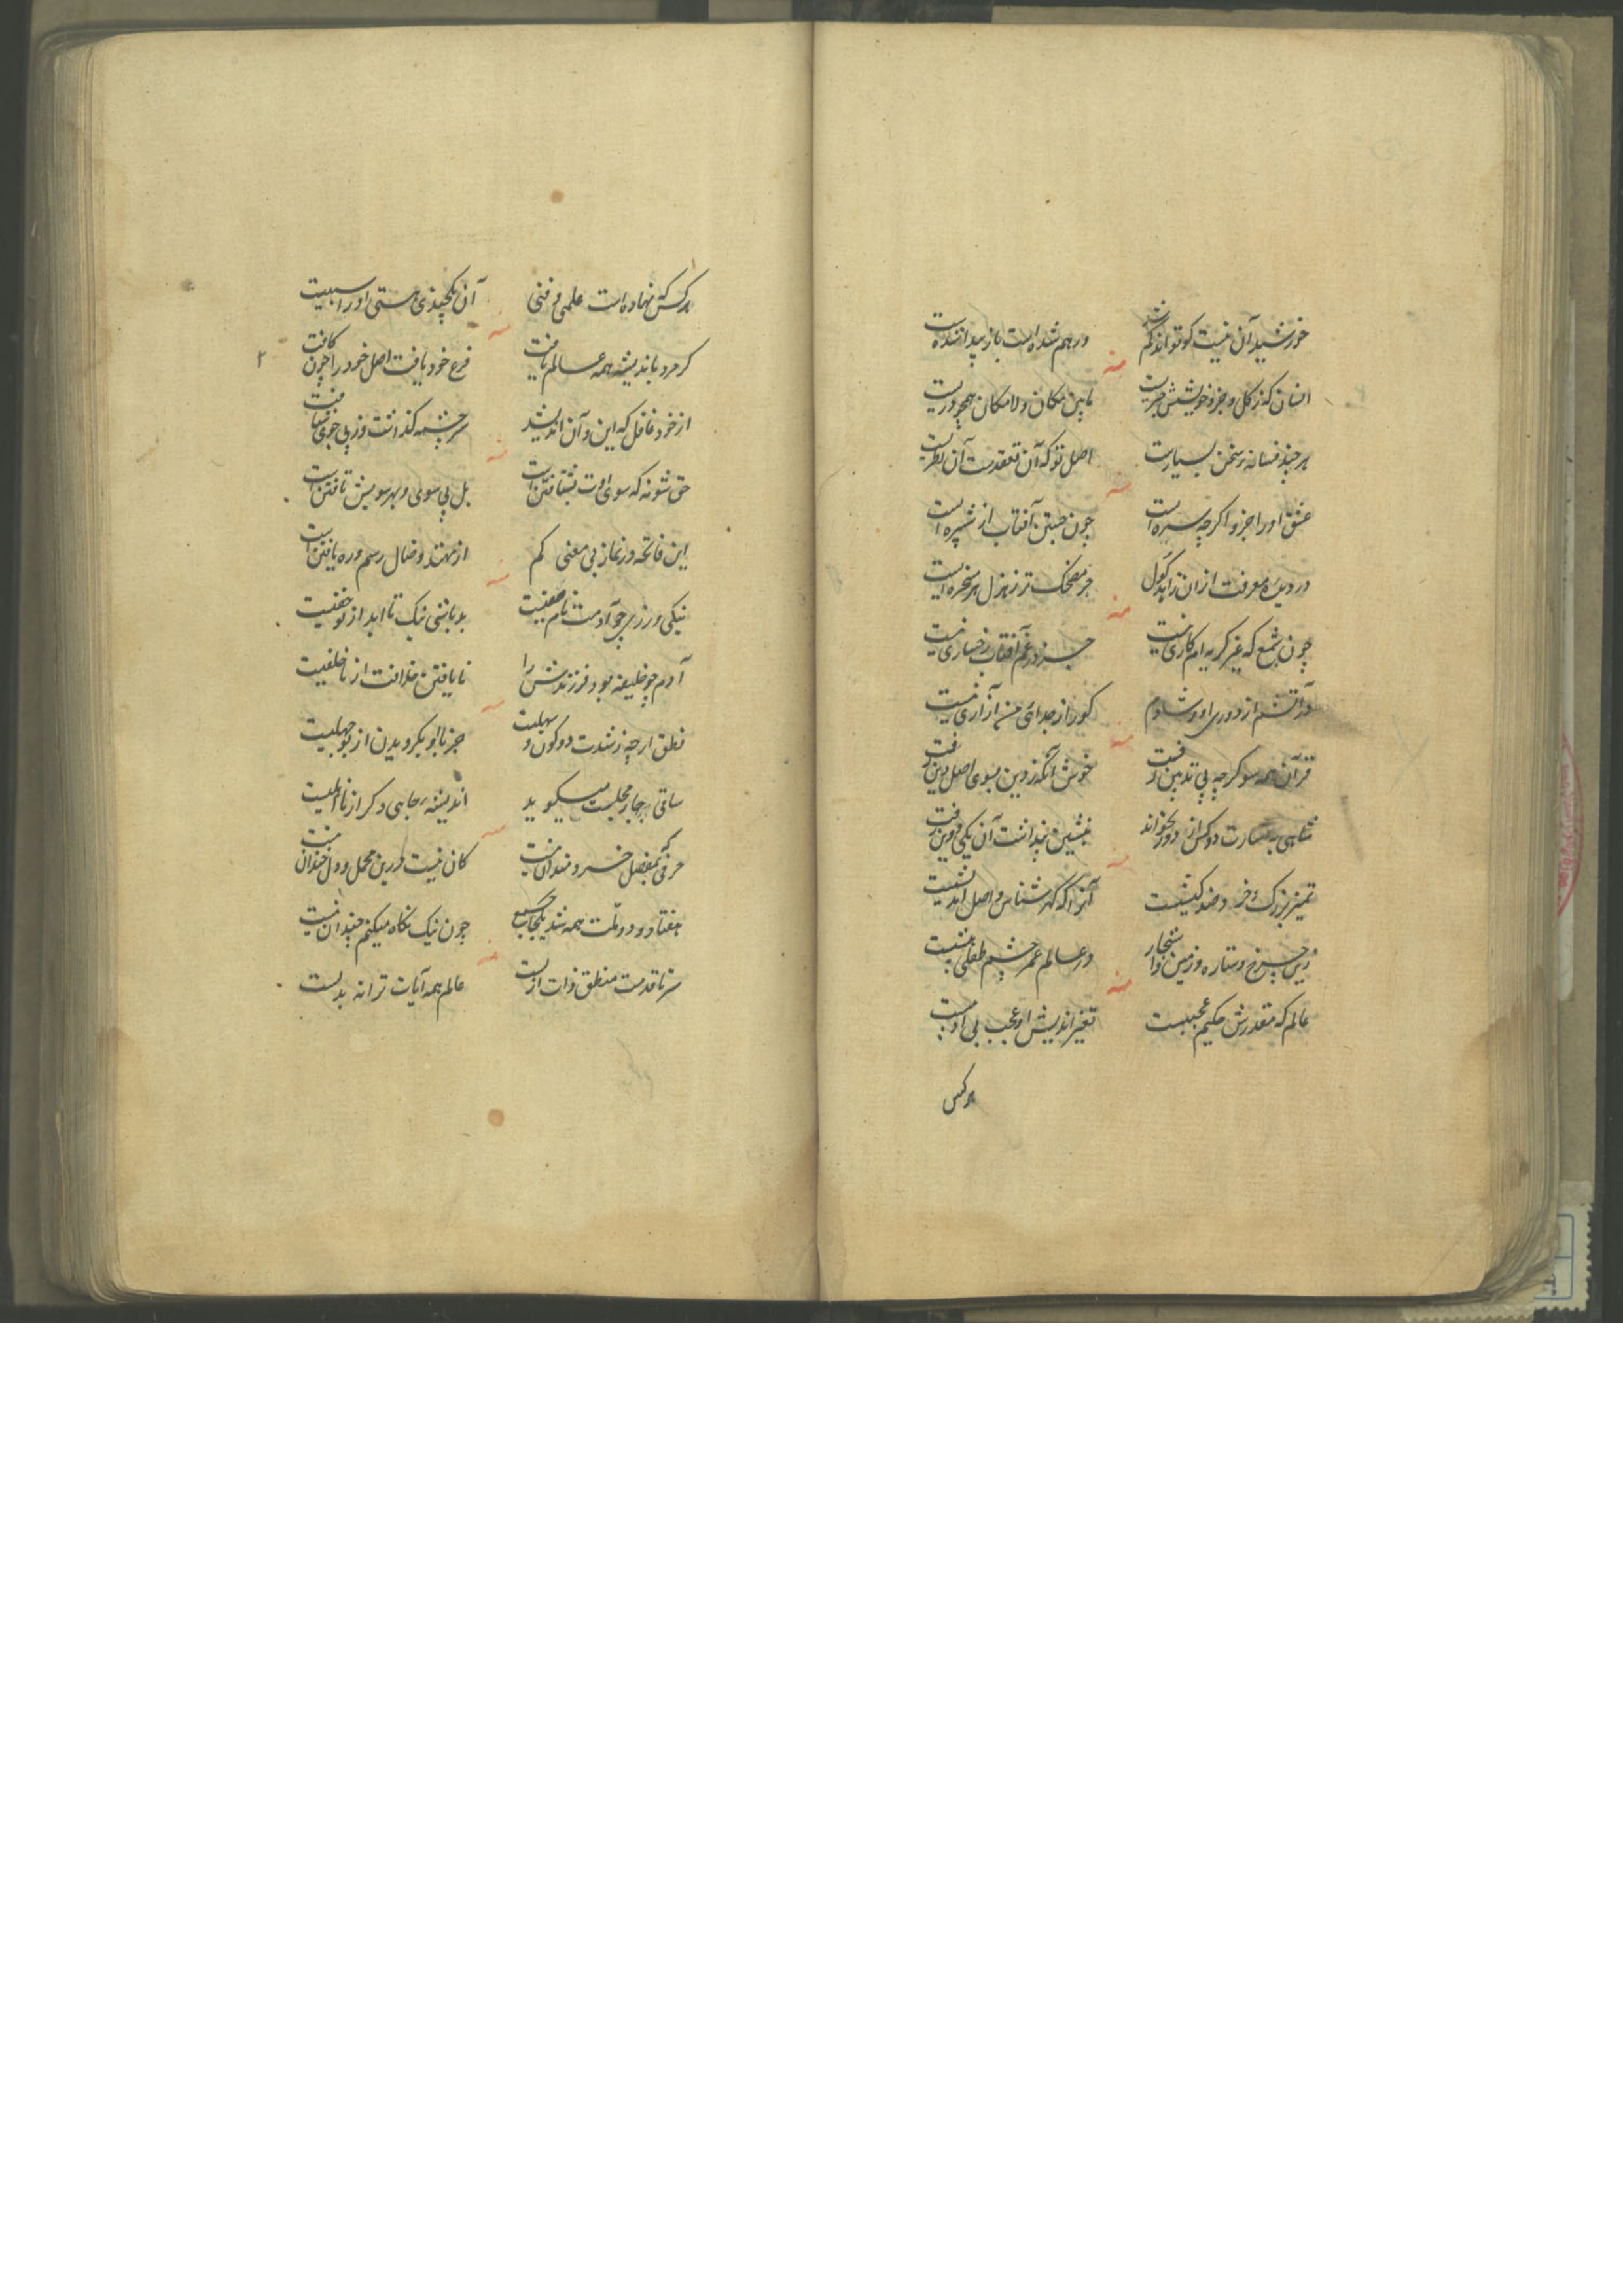 خورشید آن نیست کو تواند گم شد ورهم شده است باز پیدا نشده است
انسان که ز کل و جزو خویشش خبریست مابین مکان و لامکان همچو دریست
هر چند فسانه و سخن بسیارست اصل تو که آن تعقدست آن نظریست
عشق او را جز و اگرچه سره است چون جستن آفتاب از شپره است
در دیده معرفت از ان زاهد گول جز مضحک تر ز هزل هر مسخره است
چون شمع که غیر گریه ام کاری نیست جز درد و غم آفتاب رخساری نیست
در آتشم از دوری او و شادم کورا ز جدائی من آزاری نیست
قرآن همه سو گرچه پی تدین رفت خوش آنکه ز دین بسوی اصل دین رفت
شاهی به بشارت دو کس از دور بخواند بنشین پنداشت آن یکی و این رفت
تمییز بزرگ و خرد و ضد کیشیست آنرا که گهرشناس و اصل اندیشیست
زین چرخ و ستاره و زمین وا در عالم عمر چشم طفلی
عالم که مقدرش حکیم عجبست تغییر اندیش او عجب بی ادبست
هر کس
هر کس که نهاده است علمی و فنی آن یکچندی هستی او را سببیت
گر مرد باندیشه همه عالم یافت فرع خود یافت اصل خود را چون کافت
از خود غافل که این و آن اندیشد سرچشمه گذاشت وز پی جوی شتافت
حق شو نه که سوی اوت بشتافتن است بل بی سوی و بهر سویش تافتن است
این فاتحه در نماز بی معنی کم از مهتد و ضال رسم و ره یافتن است
نیکی ورزی چو آدمت نام صفیت بد باشی نیک تا ابد از تو خفیت
آدم چو خلیفه بود فرزندش را نا یافتن خلافت از ناخلفیت
نطق ار چه ز شدت دو کون و سهلیت جز با ابوبکر دیدن از بوجهلیت
ساقی بچار مجلست میگوید اندیشه جاهی دگر از نااهلیت
حرفی که بفضل خردمندان نیست کان نیست درین محمل و دل خندان نیست
هفتاد و دو ملت همه شد یکجا جمع چون نیک نگاه میکنم چندان نیست
سر تا قدمت منطق ذات ازلیست عالم همه آیات ترا نه بدلیست